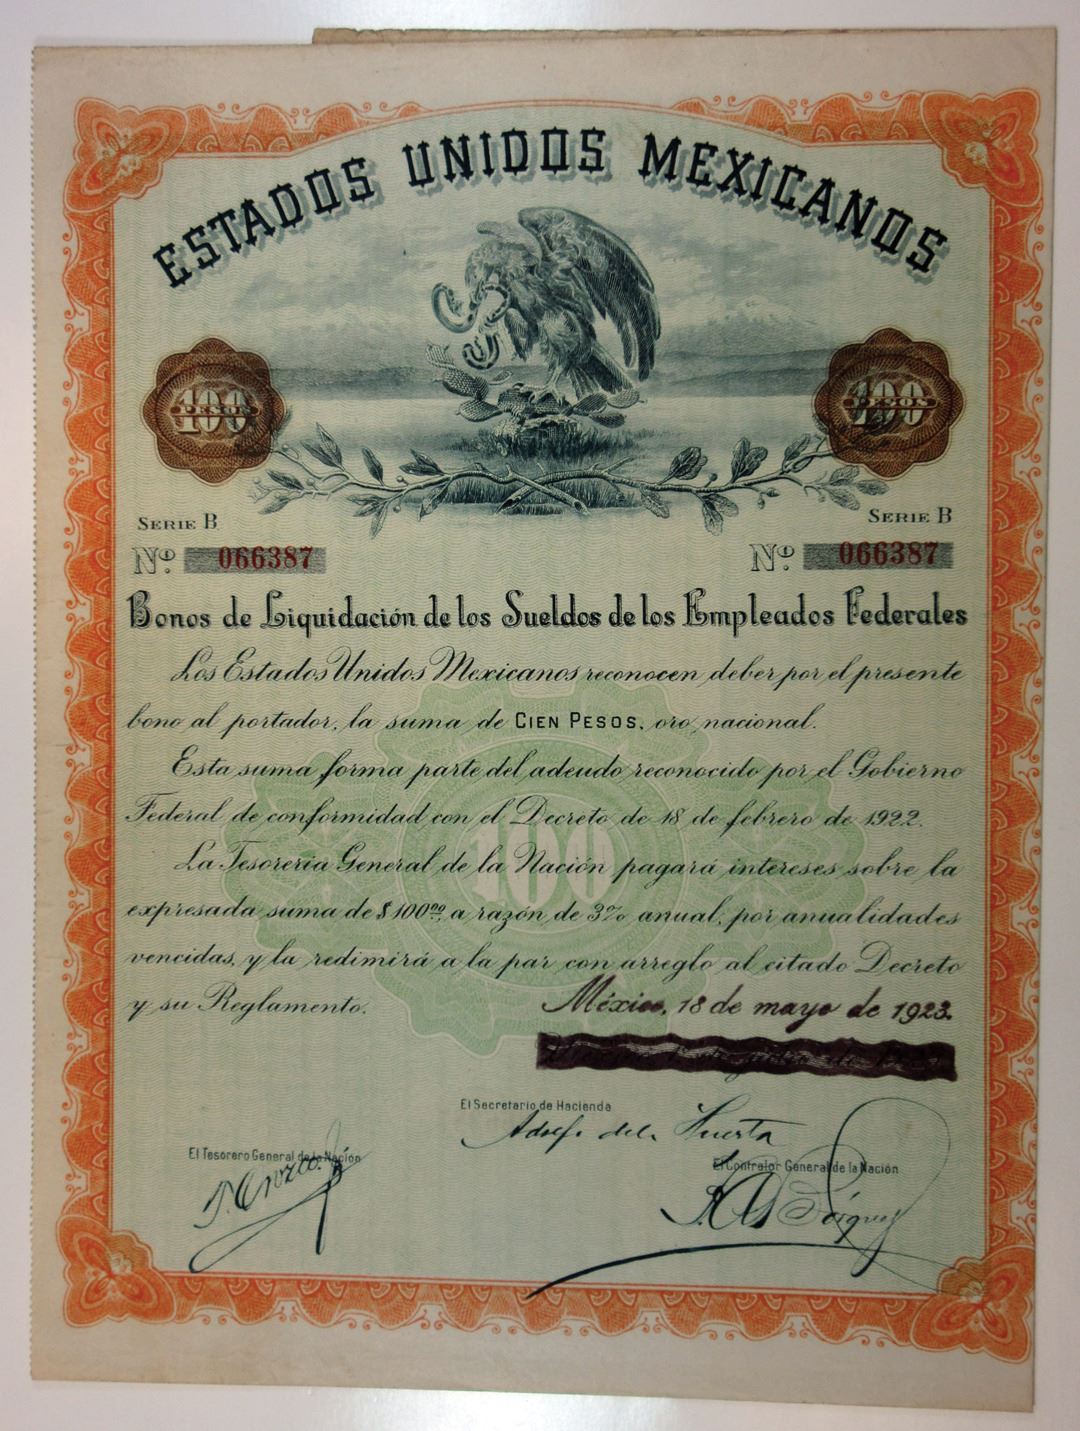 ESTADOS UNIDOS MEXICANOS
100
PESOS
100
PESOS
SERIE B
SERIE B
Nº. 066387
Nº. 066387
Bonos de Liquidación de los Sueldos de los Empleados Federales
Los Estados Unidos Mexicanos reconocen deber por el presente
bono al portador, la suma de CIEN PESOS, oro nacional.
Esta suma forma parte del adeudo reconocido por el Gobierno
Federal de conformidad con el Decreto de 18 de febrero de 1922.
La Tesorería General de la Nación pagará intereses sobre la
expresada suma de $100.00, a razón de 3% anual, por anualidades
vencidas, y la redimirá a la par con arreglo al citado Decreto
y su Reglamento.
México, 18 de mayo de 1923.
El Secretario de Hacienda
Adolfo de la Huerta
El Tesorero General de la Nación
El Contralor General de la Nación
100